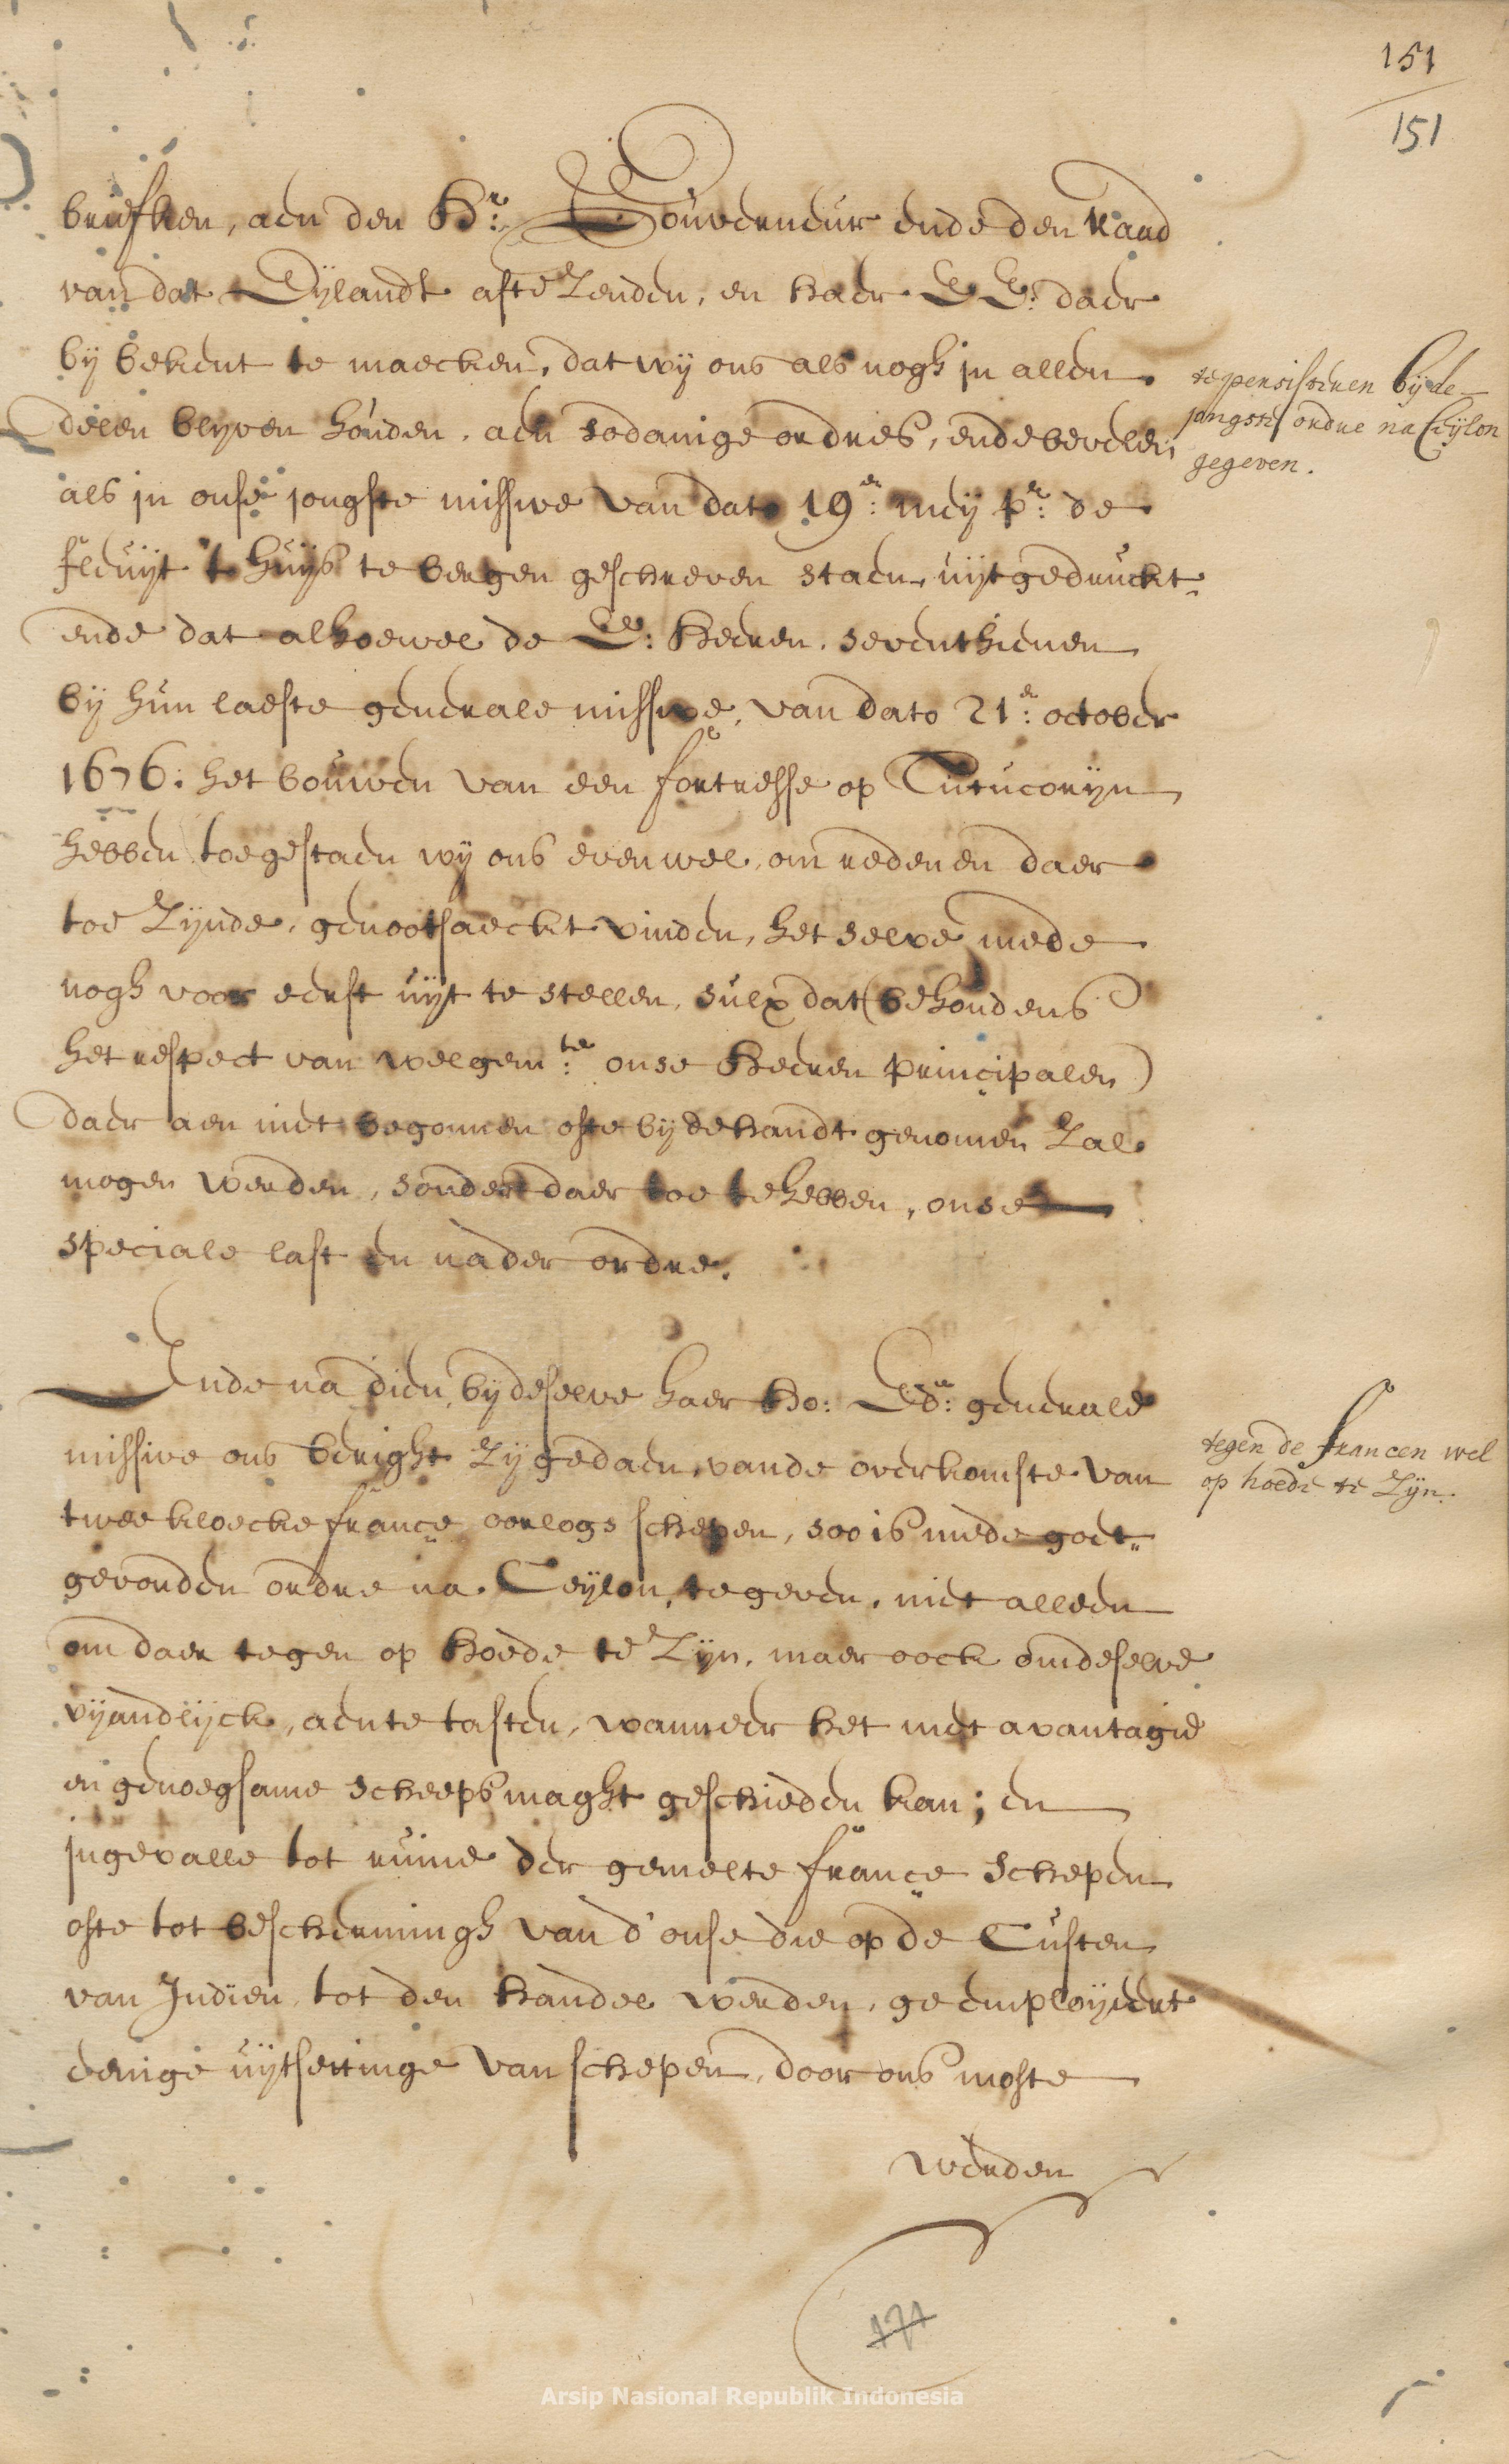 151
151
briefken, aen den Hr: Gouverneur ende den Raad
van dat Eijlandt afte Zenden, en haer EE: daer
bij bekent te maecken, dat wij ons als nogh in allen
delen blijven houden, aen sodanige ordres, ende bevelen
als in onse jongste missive van dato 19en: meij pr: de
fleuijt 't Huijs te bergen geschreven staen, uijtgedruckt
ende dat alhoewel de E: Heeren, seventhienen
bij hun laeste generale missive, van dato 21en: october
1676: het bouwen van een fortresse op Tutucorijn
hebben toegestaen wij ons evenwel, om redenen daer
toe Zijnde, genootsaeckt vinden, het selve mede
nogh voor eerst uijt te stellen, sulx dat (behoudens
het respect van welgemte: onse Heeren principalen)
daer aen niet begonnen ofte bij de handt genomen Zal
mogen werden, sonder daer toe te hebben, onse
speciale last en nader ordre.
te persisteren bij de
jongste ordre na Ceijlon
gegeven.
Ende na dien, bij deselve haer Ho: Ede: generale
missive ons beright Zij gedaen, van de overkomste van
twee kloecke france oorlogs schepen, soo is mede goet
gevonden ordre na Ceijlon, te geven, niet alleen
om daer tegen op hoede te Zijn, maer oock om deselve
vijandlijck, aen te tasten, wanneer het met avantagie
en genoegsame scheeps maght geschieden kan; en
ingevalle tot ruine der gemelte france schepen
ofte tot bescherminge van d' onse die op de Custen
van Indien, tot den handel werden, geemploijeert
eenige uijtsettinge van schepen, door ons moste
werden
tegen de francen wel
op hoede te Zijn.
171
Arsip Nasional Republik Indonesia